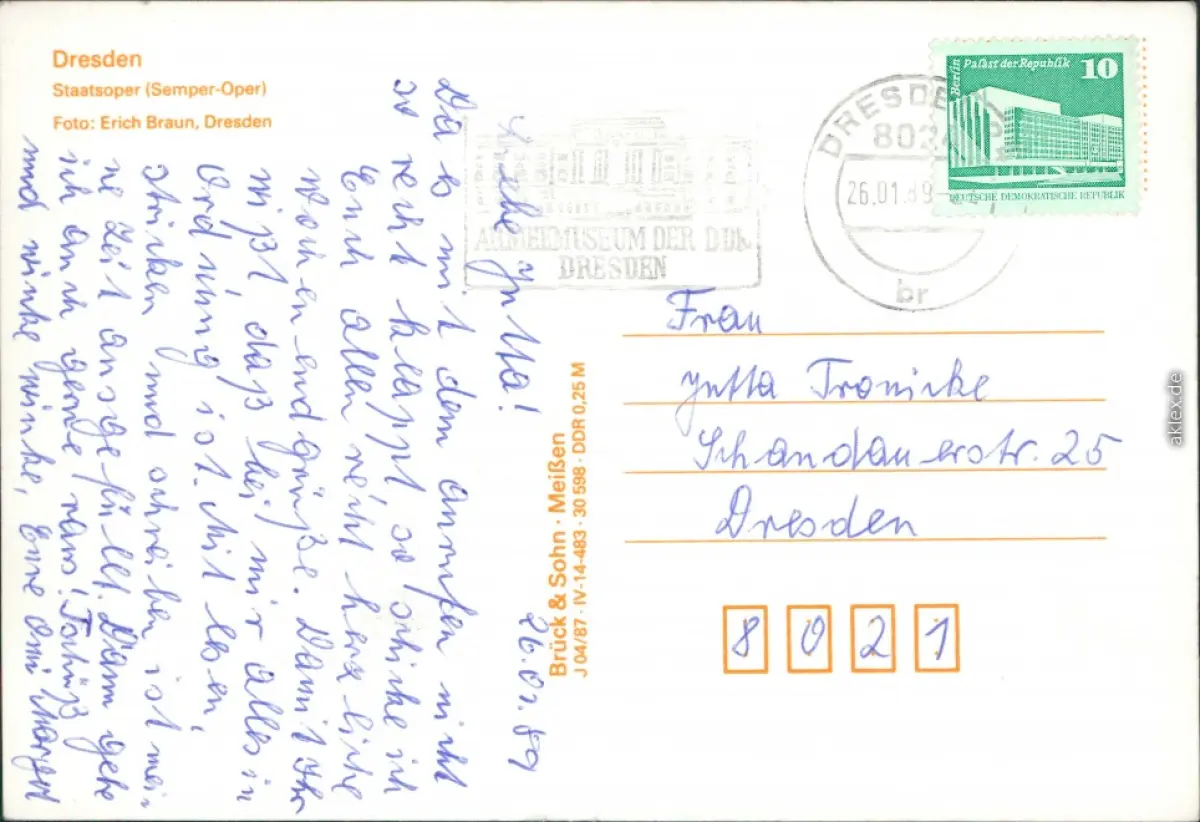 Dresden
Staatsoper (Semper-Oper)
Foto: Erich Braun, Dresden
26.01.89
Liebe Jutta!
Da es mit dem anrufen nicht
so recht klappt so schicke ich
Euch allen recht herzliche
Wochenendgrüße. Damit Ihr
wißt, daß bei mir alles in
Ordnung ist. Mit lesen,
stricken und schreiben ist mei
ne Zeit ausgefüllt. Dann gehe
ich auch gerne raus! Tschüß
und winke winke, Eure Omi Margot
Brück & Sohn · Meißen
J 04/87 · IV-14-483 · 30 598 · DDR 0,25 M
ARMEEMUSEUM DER DDR
DRESDEN
DRESDEN
802
26.01.89
br
Berlin Palast der Republik 10
DEUTSCHE DEMOKRATISCHE REPUBLIK
Frau
Jutta Tronicke
Schandauerstr. 25
Dresden
8021
aklex.de